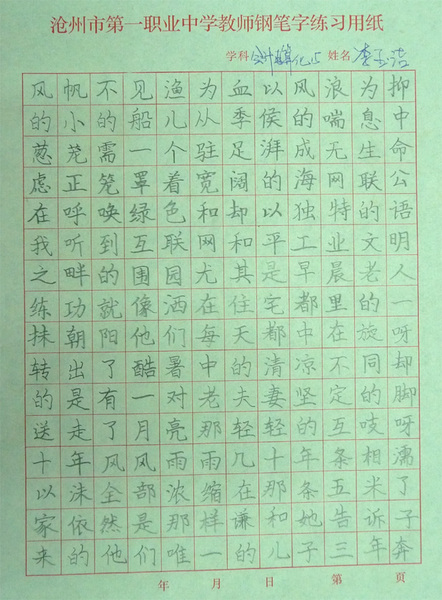 沧州市第一职业中学教师钢笔字练习用纸
学科 会计 姓名 李
风帆不见渔为血以风浪为抑
的小的船儿从季侯的喘息中
葱茏需一个驻足湃成无生命
虑正笼罩着宽阔的海网联公
在呼唤绿色和却以独特的语
我听到互联网和平工业文明
之畔的围园尤其是早晨老人
练功就像洒在住宅都里的一
抹朝阳他们每天都中在旋呀
转出了酷暑中的清凉不同却
的是有一对老夫妻坚定的脚
送走了月亮那轻轻的互吱呀
十年风风雨雨几十年条相濡
以沫全部浓缩在那条五米了
家依然是那样谦和她告诉子
来的他们唯一的儿子三年奔
年 月 日 第 页